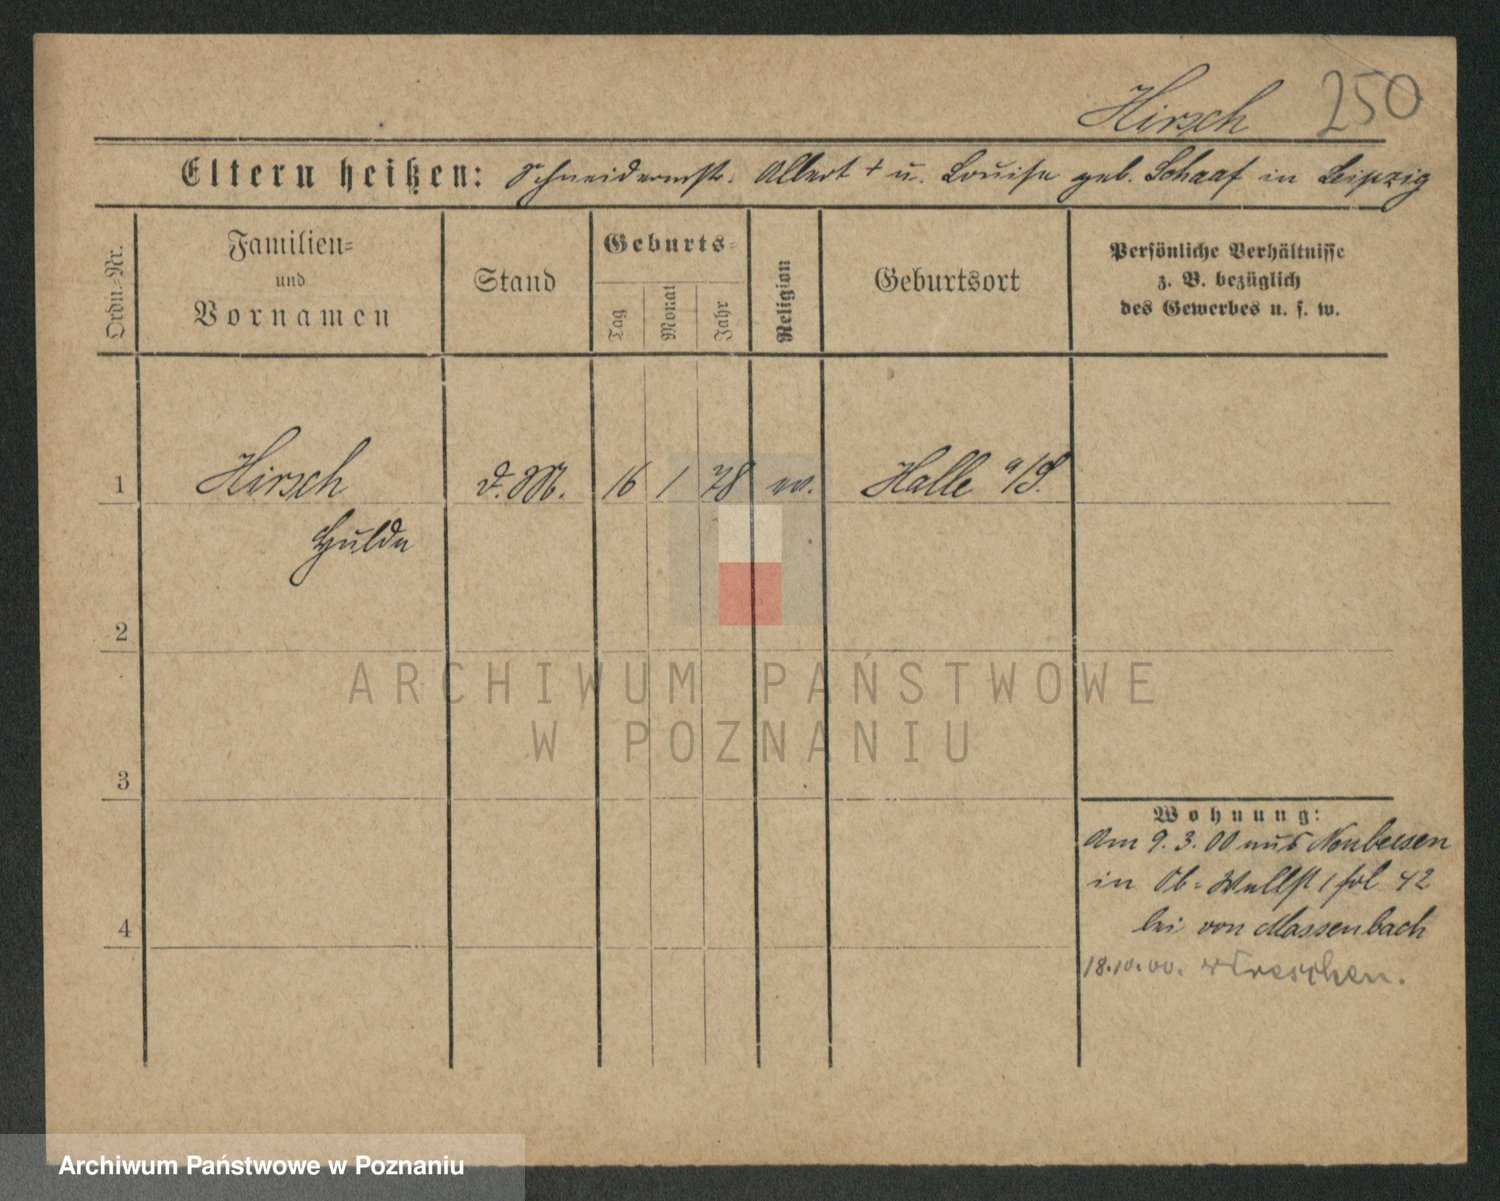 Hirsch 250
Eltern heißen: Schneidermstr. Albert + u. Louise geb. Schaaf in Leipzig
Ordn.-Nr.
Familien-
und
Vornamen
Stand
Geburts-
Tag
Monat
Jahr
Religion
Geburtsort
Persönliche Verhältnisse
z. B. bezüglich
des Gewerbes u. s. w.
1 Hirsch D.M. 16 1 78 ev. Halle a/S.
Hulda
2
ARCHIWUM PAŃSTWOWE
W POZNANIU
3
Wohnung:
Am 9.3.00 aus
in Ob-Wallst 1 fol 42
4
bei von Massenbach
18.10.00.
Archiwum Państwowe w Poznaniu